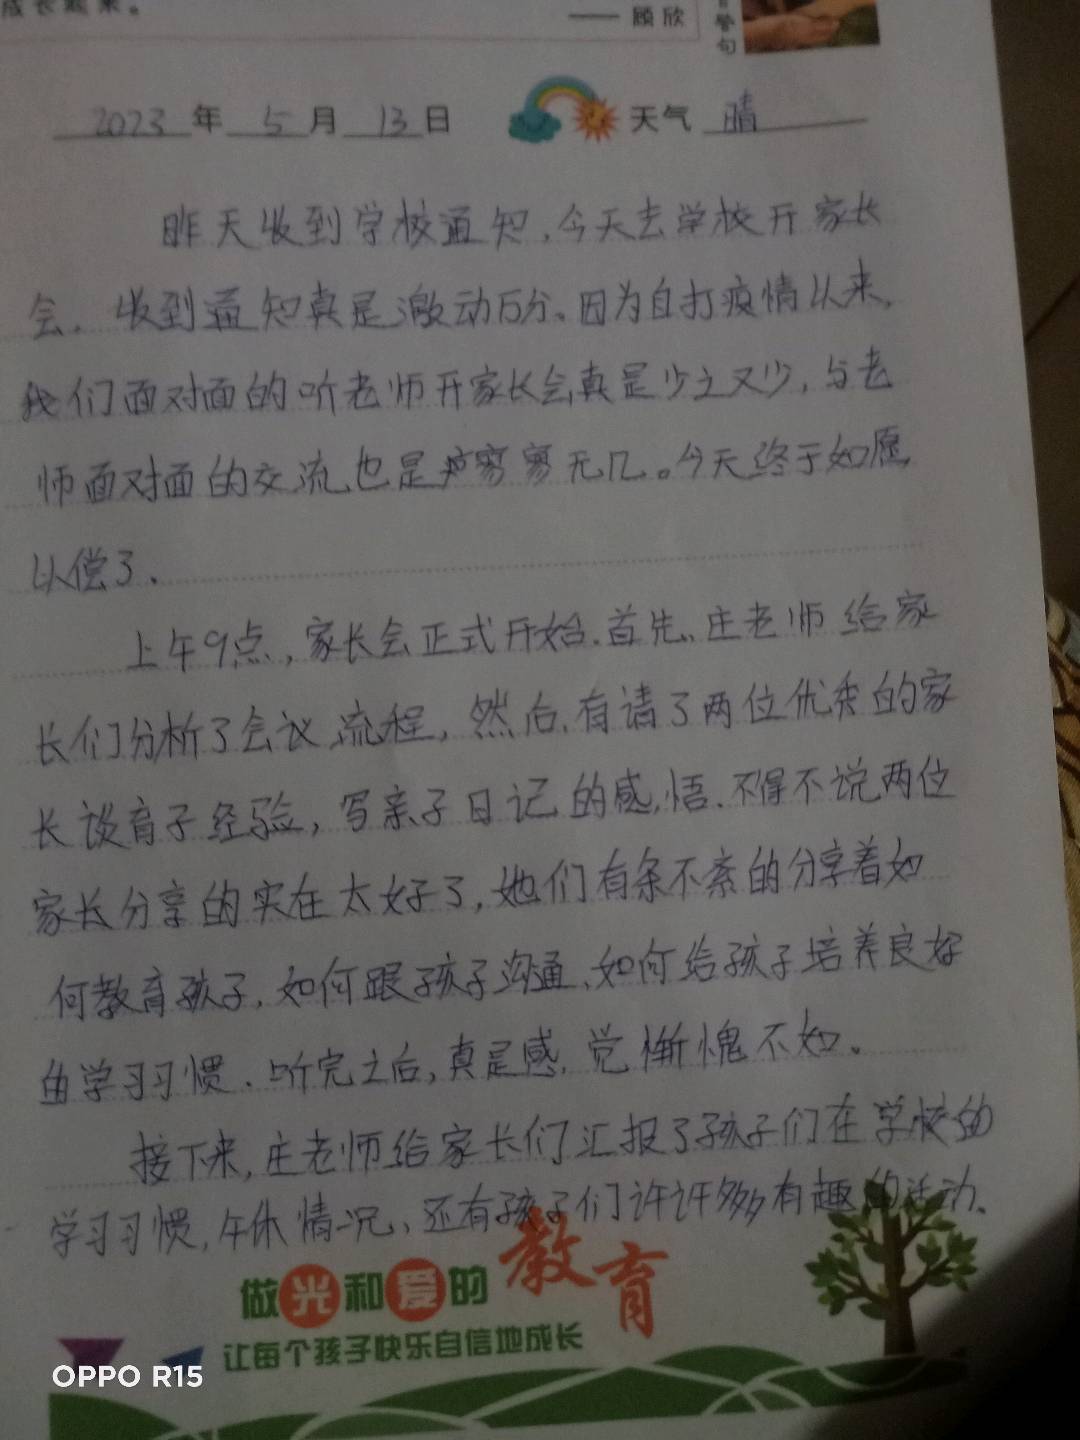 成长起来。
—— 顾欣
警句
2023年5月13日 天气 晴
昨天收到学校通知,今天去学校开家长
会. 收到通知真是激动万分、因为自打疫情以来,
我们面对面的听老师开家长会真是少之又少,与老
师面对面的交流也是寥寥无几。今天终于如愿
以偿了.
上午9点,家长会正式开始.首先、庄老师给家
长们分析了会议流程,然后,有请了两位优秀的家
长谈育子经验,写亲子日记的感悟.不得不说两位
家长分享的实在太好了,她们有条不紊的分享着如
何教育孩子,如何跟孩子沟通、如何给孩子培养良好
的学习习惯.听完之后,真是感觉惭愧不如。
接下来,庄老师给家长们汇报了孩子们在学校的
学习习惯,午休情况,还有孩子们许许多多有趣的活动、
做光和爱的教育
让每个孩子快乐自信地成长
OPPO R15